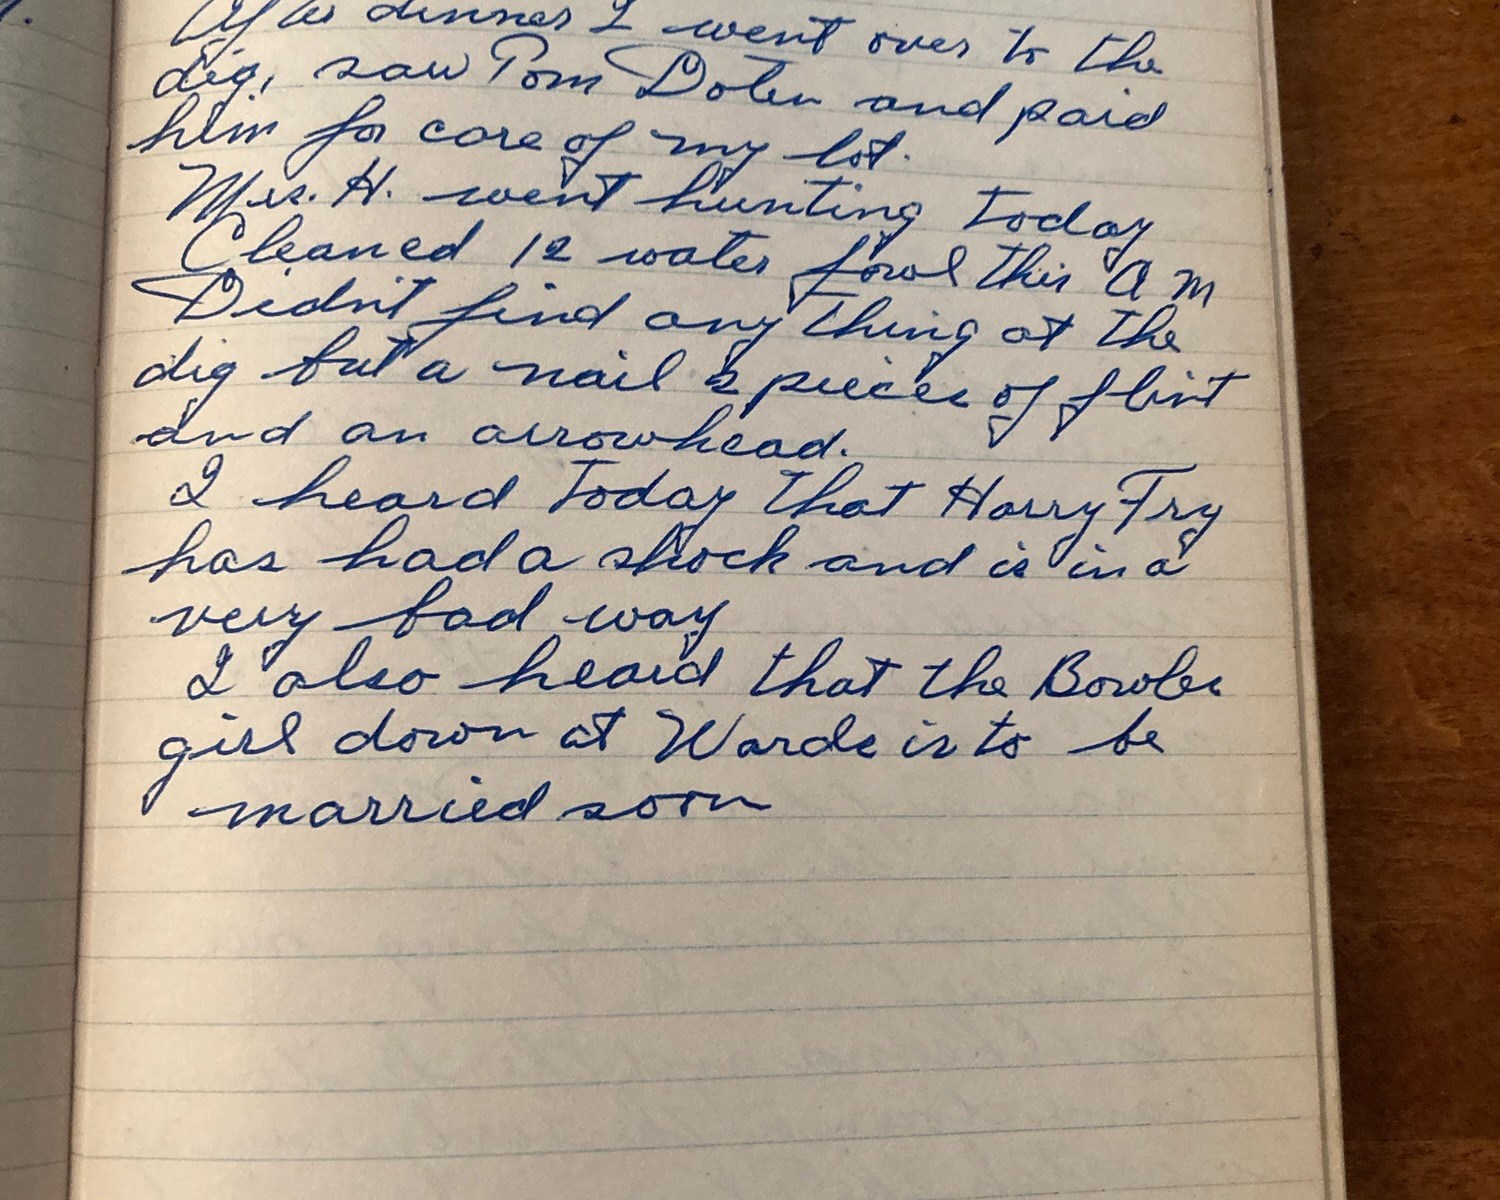 After dinner I went over to the
dig, saw Tom Doten and paid
him for care of my lot.
Mrs. H. went hunting today
Cleaned 12 water fowl this A M
Didn't find any thing at the
dig but a nail 2 pieces of flint
and an arrowhead.
I heard today that Harry Fry
has had a shock and is in a
very bad way
I also heard that the Bowler
girl down at Wards is to be
married soon